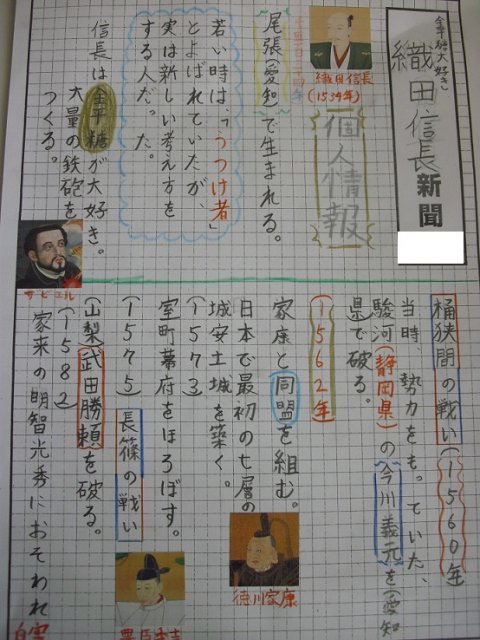 金平糖大好き
織田信長新聞
織田信長
(1534年)
個人情報
尾張(愛知)で生まれる。
若い時は、「うつけ者」
とよばれていたが、
実は新しい考え方を
する人だった。
信長は金平糖が大好き。
大量の鉄砲を
つくる。
ザビエル
桶狭間の戦い(1560年)
当時、勢力をもっていた、
駿河(静岡県)の今川義元を(愛知
県で破る。
(1562年)
家康と同盟を組む。
日本で最初の七層の
城安土城を築く。
(1573)
室町幕府をほろぼす。
(1575)長篠の戦い
(山梨)武田勝頼を破る。
(1582)
家来の明智光秀におそわれ
徳川家康
豊臣秀吉